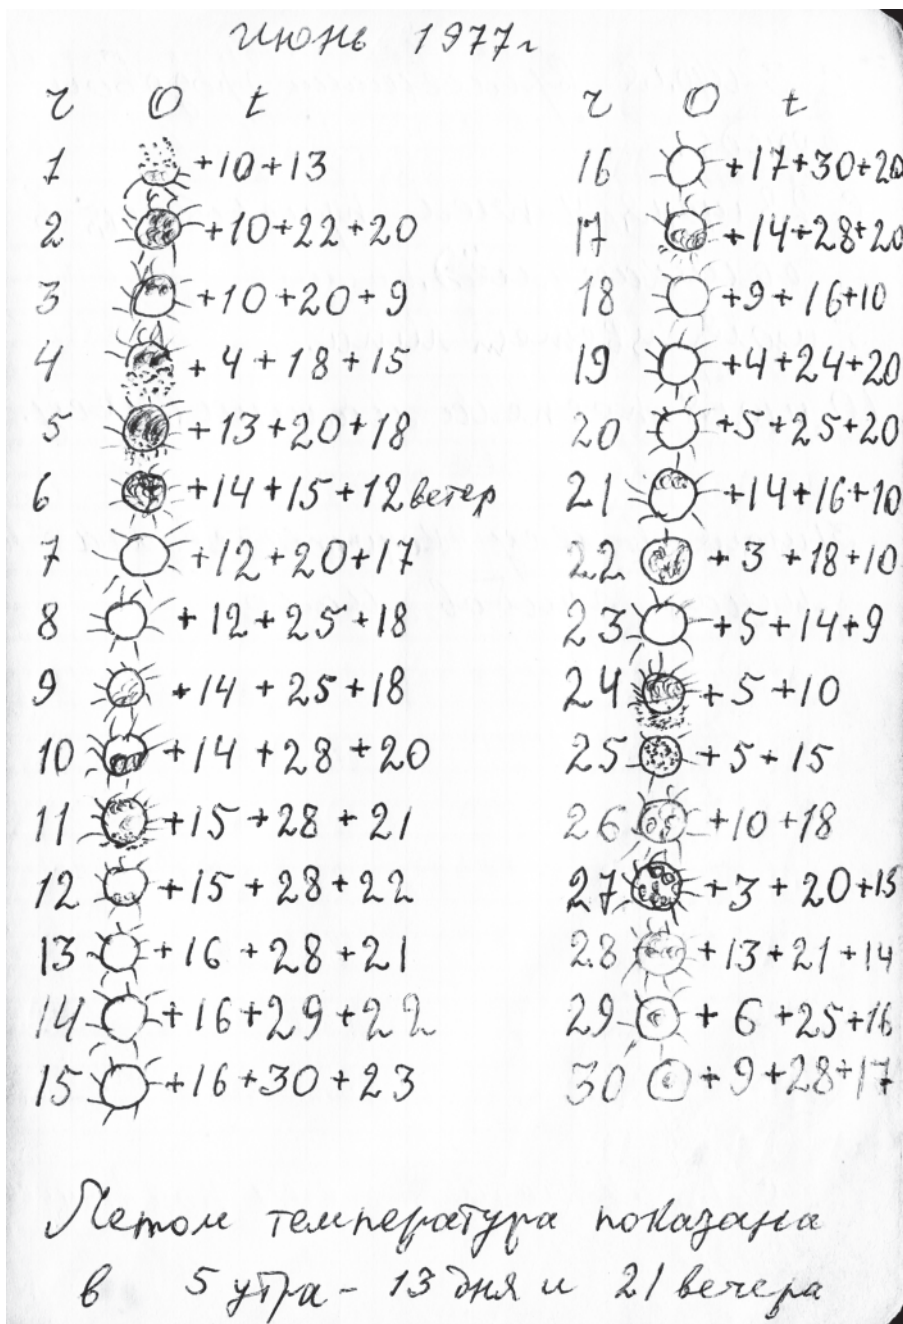 июнь 1977г
ч О t
1 +10+13
2 +10+22+20
3 +10+20+9
4 +4+18+15
5 +13+20+18
6 +14+15+12 ветер
7 +12+20+17
8 +12+25+18
9 +14+25+18
10 +14+28+20
11 +15+28+21
12 +15+28+22
13 +16+28+21
14 +16+29+22
15 +16+30+23
ч О t
16 +17+30+20
17 +14+28+20
18 +9+16+10
19 +4+24+20
20 +5+25+20
21 +14+16+10
22 +3+18+10
23 +5+14+9
24 +5+10
25 +5+15
26 +10+18
27 +3+20+15
28 +13+21+14
29 +6+25+16
30 +9+28+17
Летом температура показана
в 5 утра - 13 дня и 21 вечера